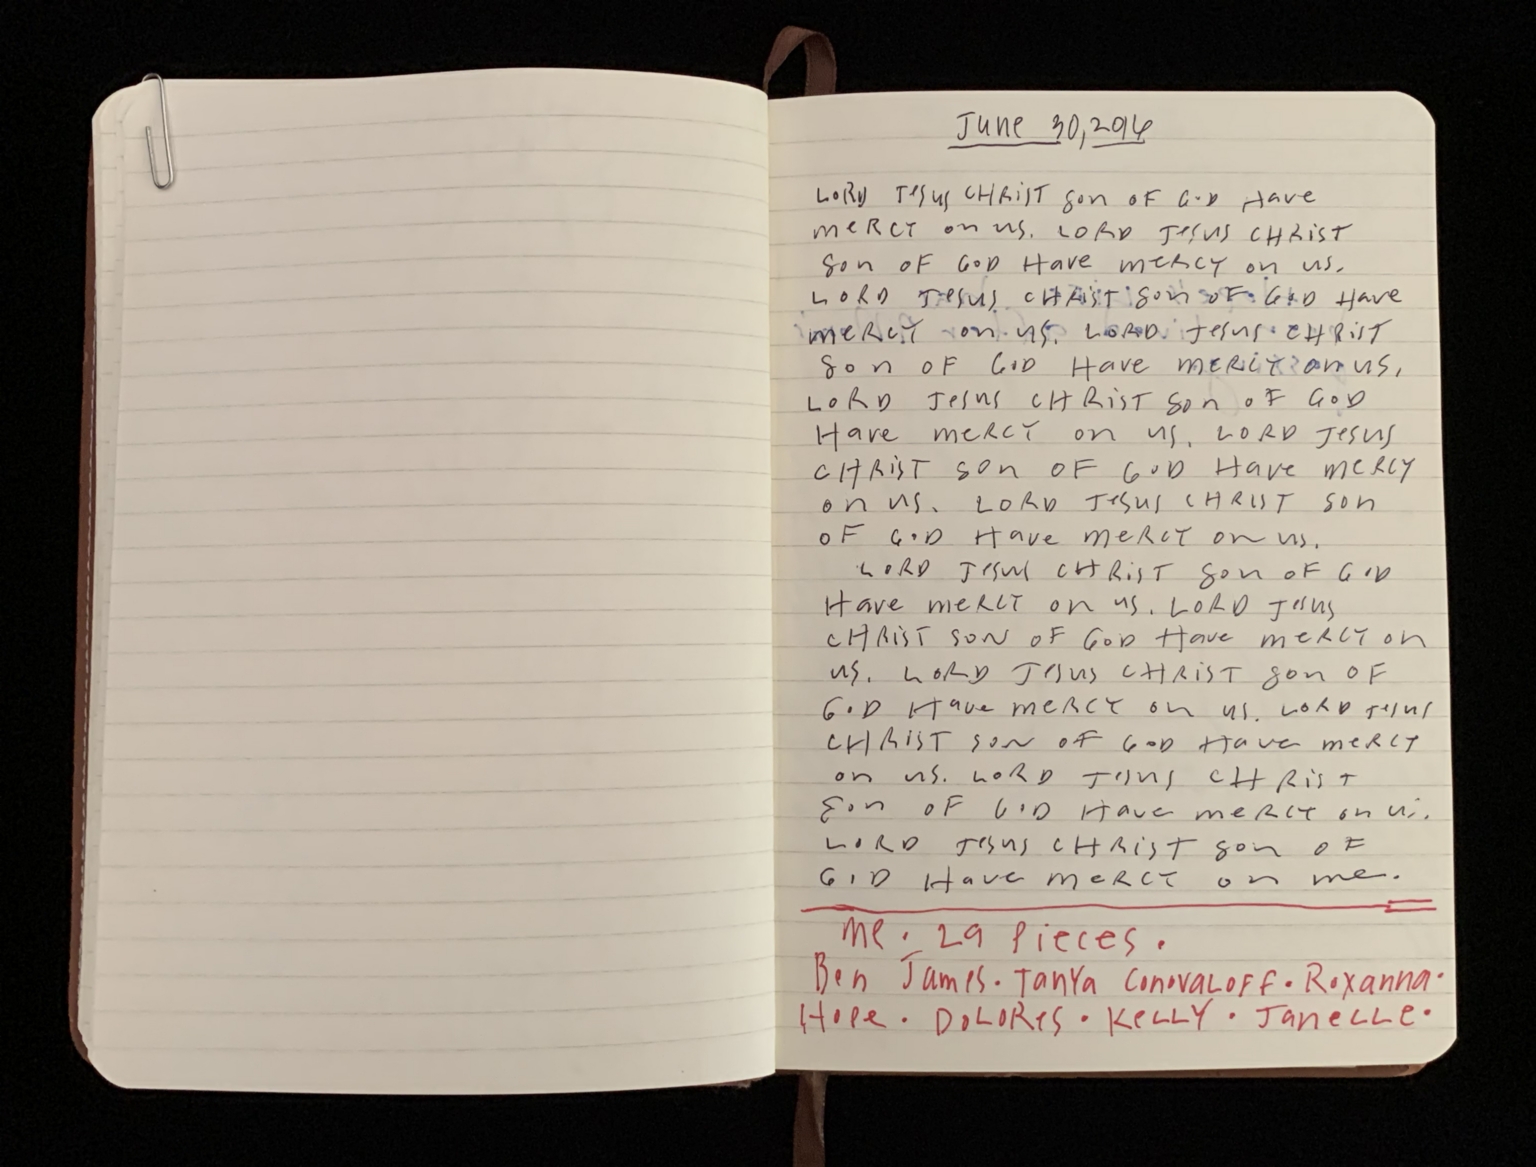 June 30, 2916
LORD Jesus CHRIST Son OF GOD Have
meRCY on us. LORD Jesus CHRIST
Son OF GOD Have meRCY on us.
LORD Jesus CHRIST Son OF GOD Have
meRCY on us. LORD Jesus CHRIST
Son OF GOD Have meRCY on us.
LORD Jesus CHRIST Son OF GOD
Have meRCY on us. LORD Jesus
CHRIST son OF GOD Have meRCY
on us. LORD Jesus CHRIST son
OF GOD Have meRCY on us.
LORD Jesus CHRIST Son OF GOD
Have meRCY on us. LORD Jesus
CHRIST SON OF GOD Have meRCY on
us. LORD Jesus CHRIST Son OF
GOD Have meRCY on us. LORD Jesus
CHRIST son OF GOD Have meRCY
on us. LORD Jesus CHRIST
Son OF GOD Have meRCY on us.
LORD Jesus CHRIST Son OF
GOD Have meRCY on me.
Me. 29 Pieces.
Ben James. Tanya Conovaloff. Roxanna.
Hope. DOLORES. KELLY. JaneLLe.